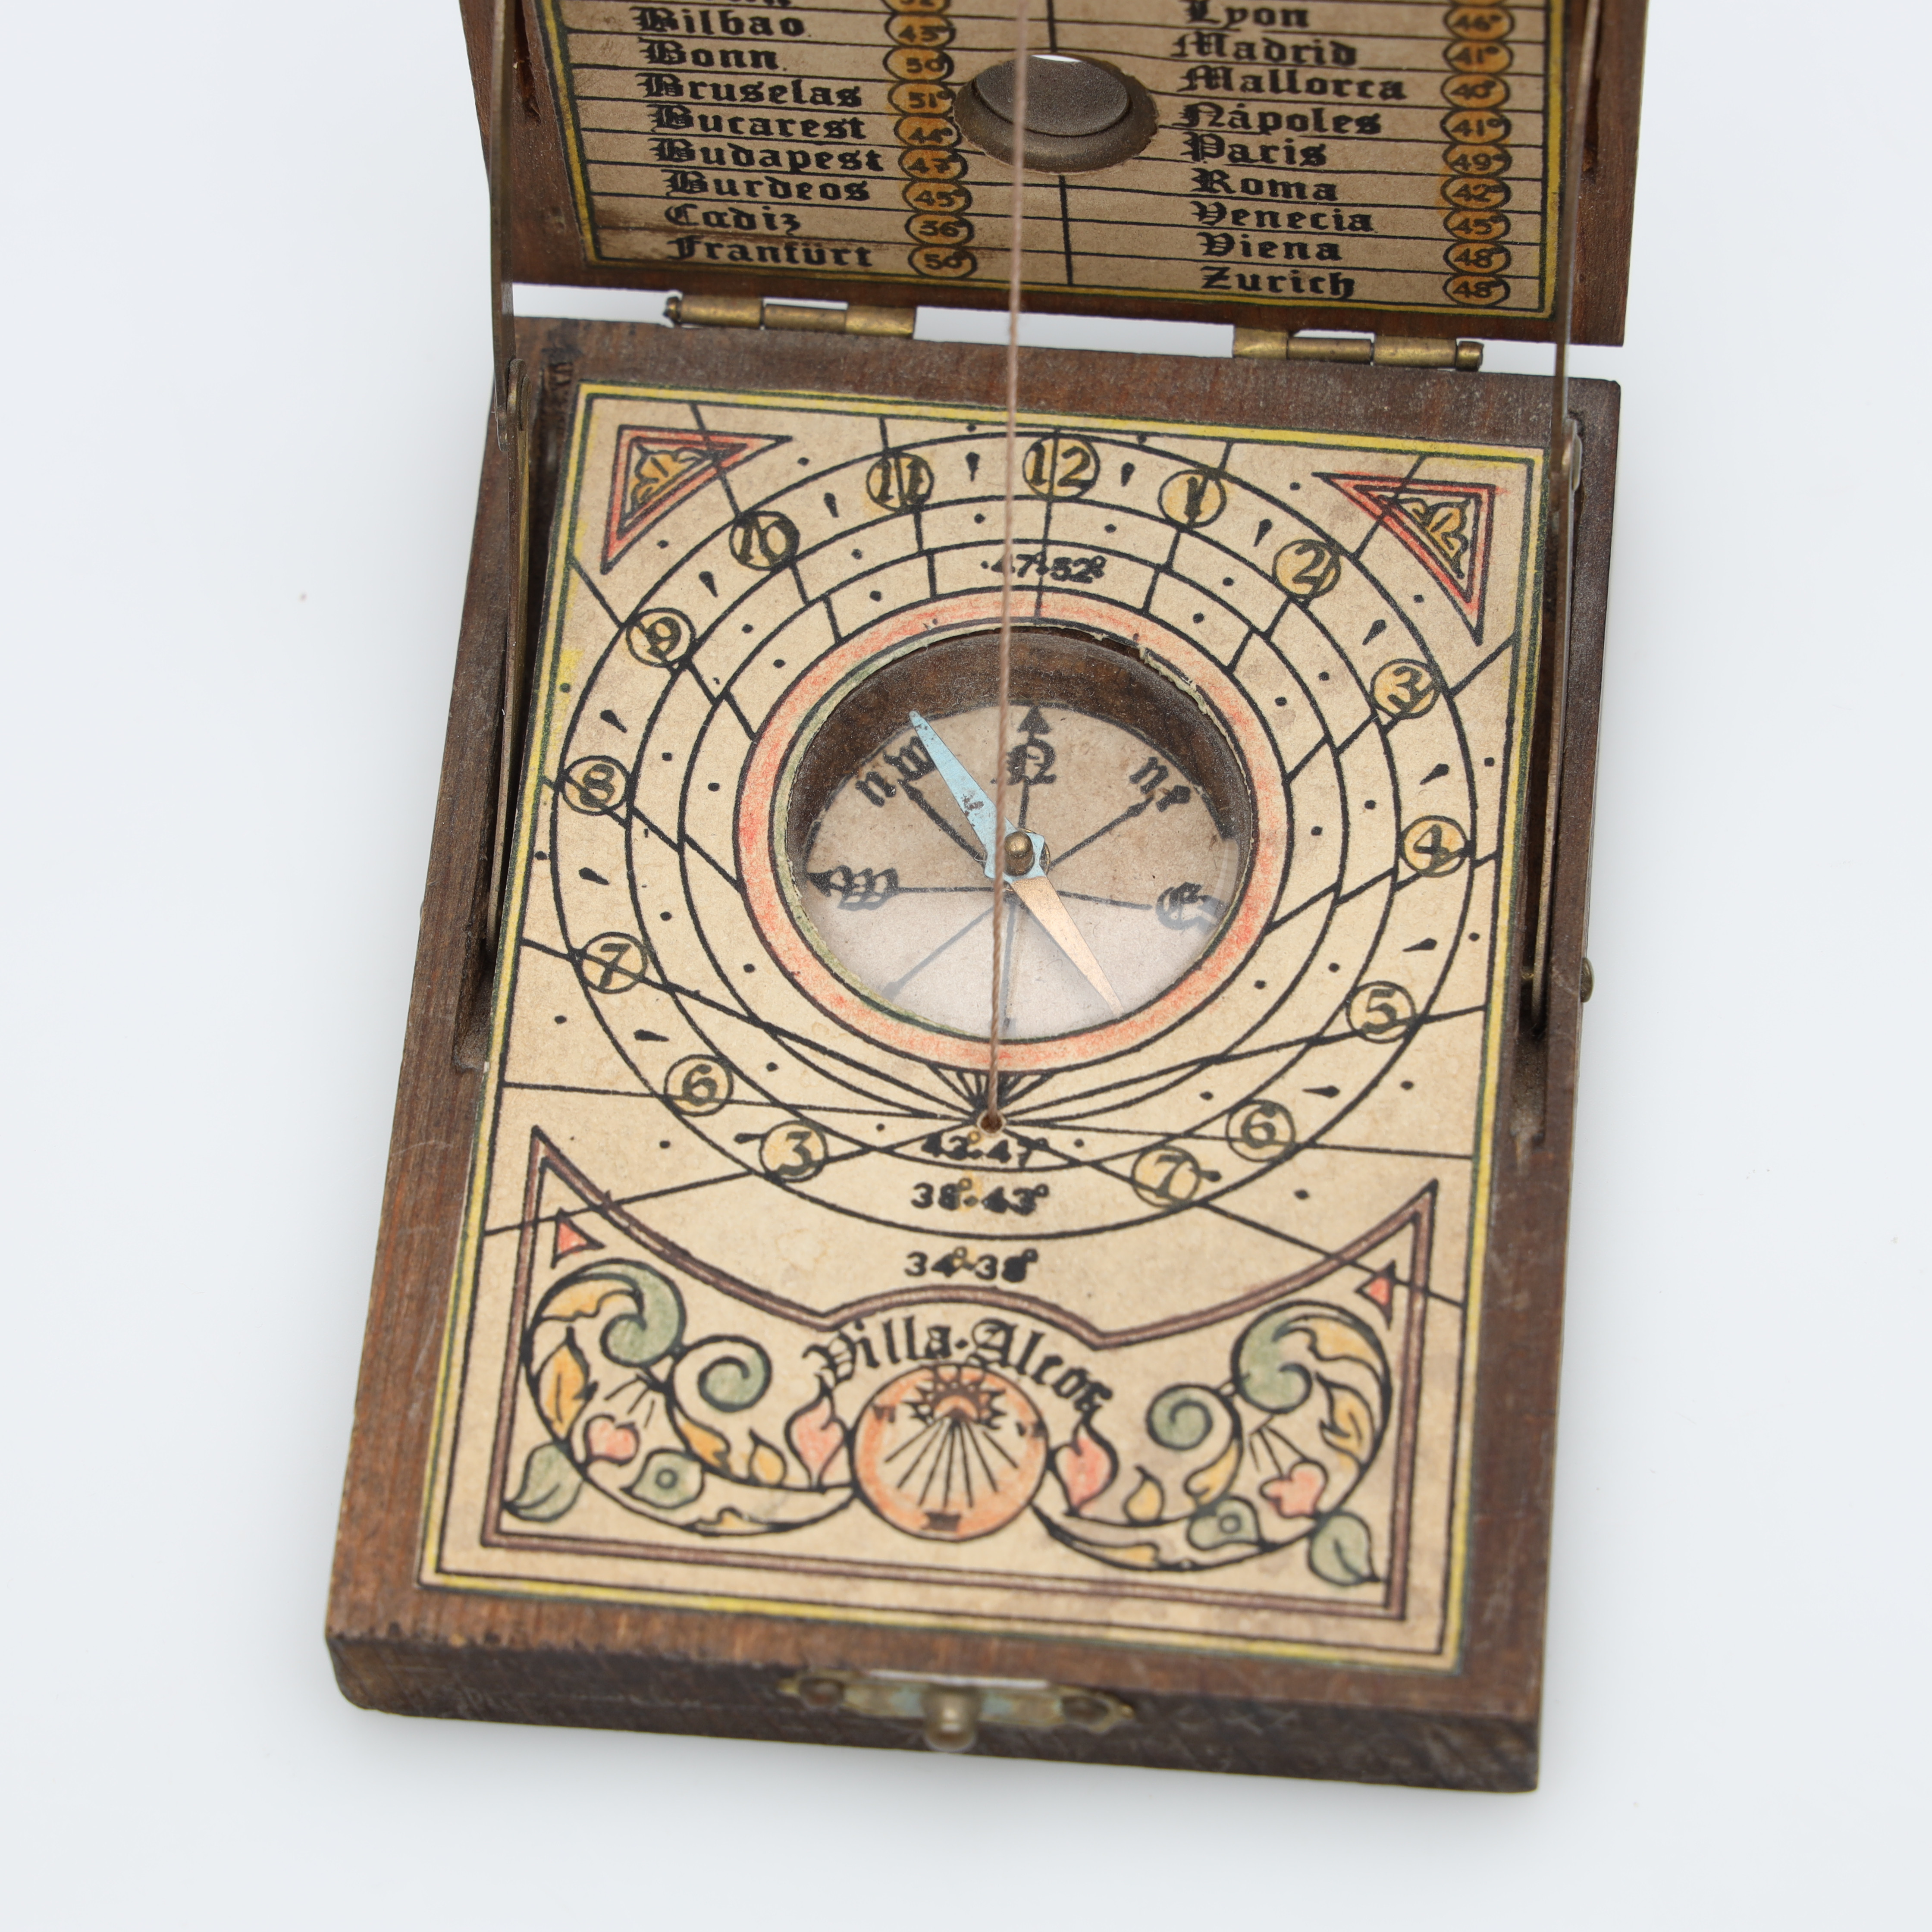 Bilbao 43°
Bonn 50°
Bruselas 51°
Bucarest 44°
Budapest 47°
Burdeos 45°
Cadiz 36°
Franfurt 50°
Lyon 46°
Madrid 41°
Mallorca 40°
Nápoles 41°
Paris 49°
Roma 42°
Venecia 45°
Viena 48°
Zurich 48°
11 12 1
10 2
9 3
8 4
7 5
6 6
3 7
47°·52°
N
NW
W E
43°·47°
38°·43°
34°·38°
Villa·Alcor